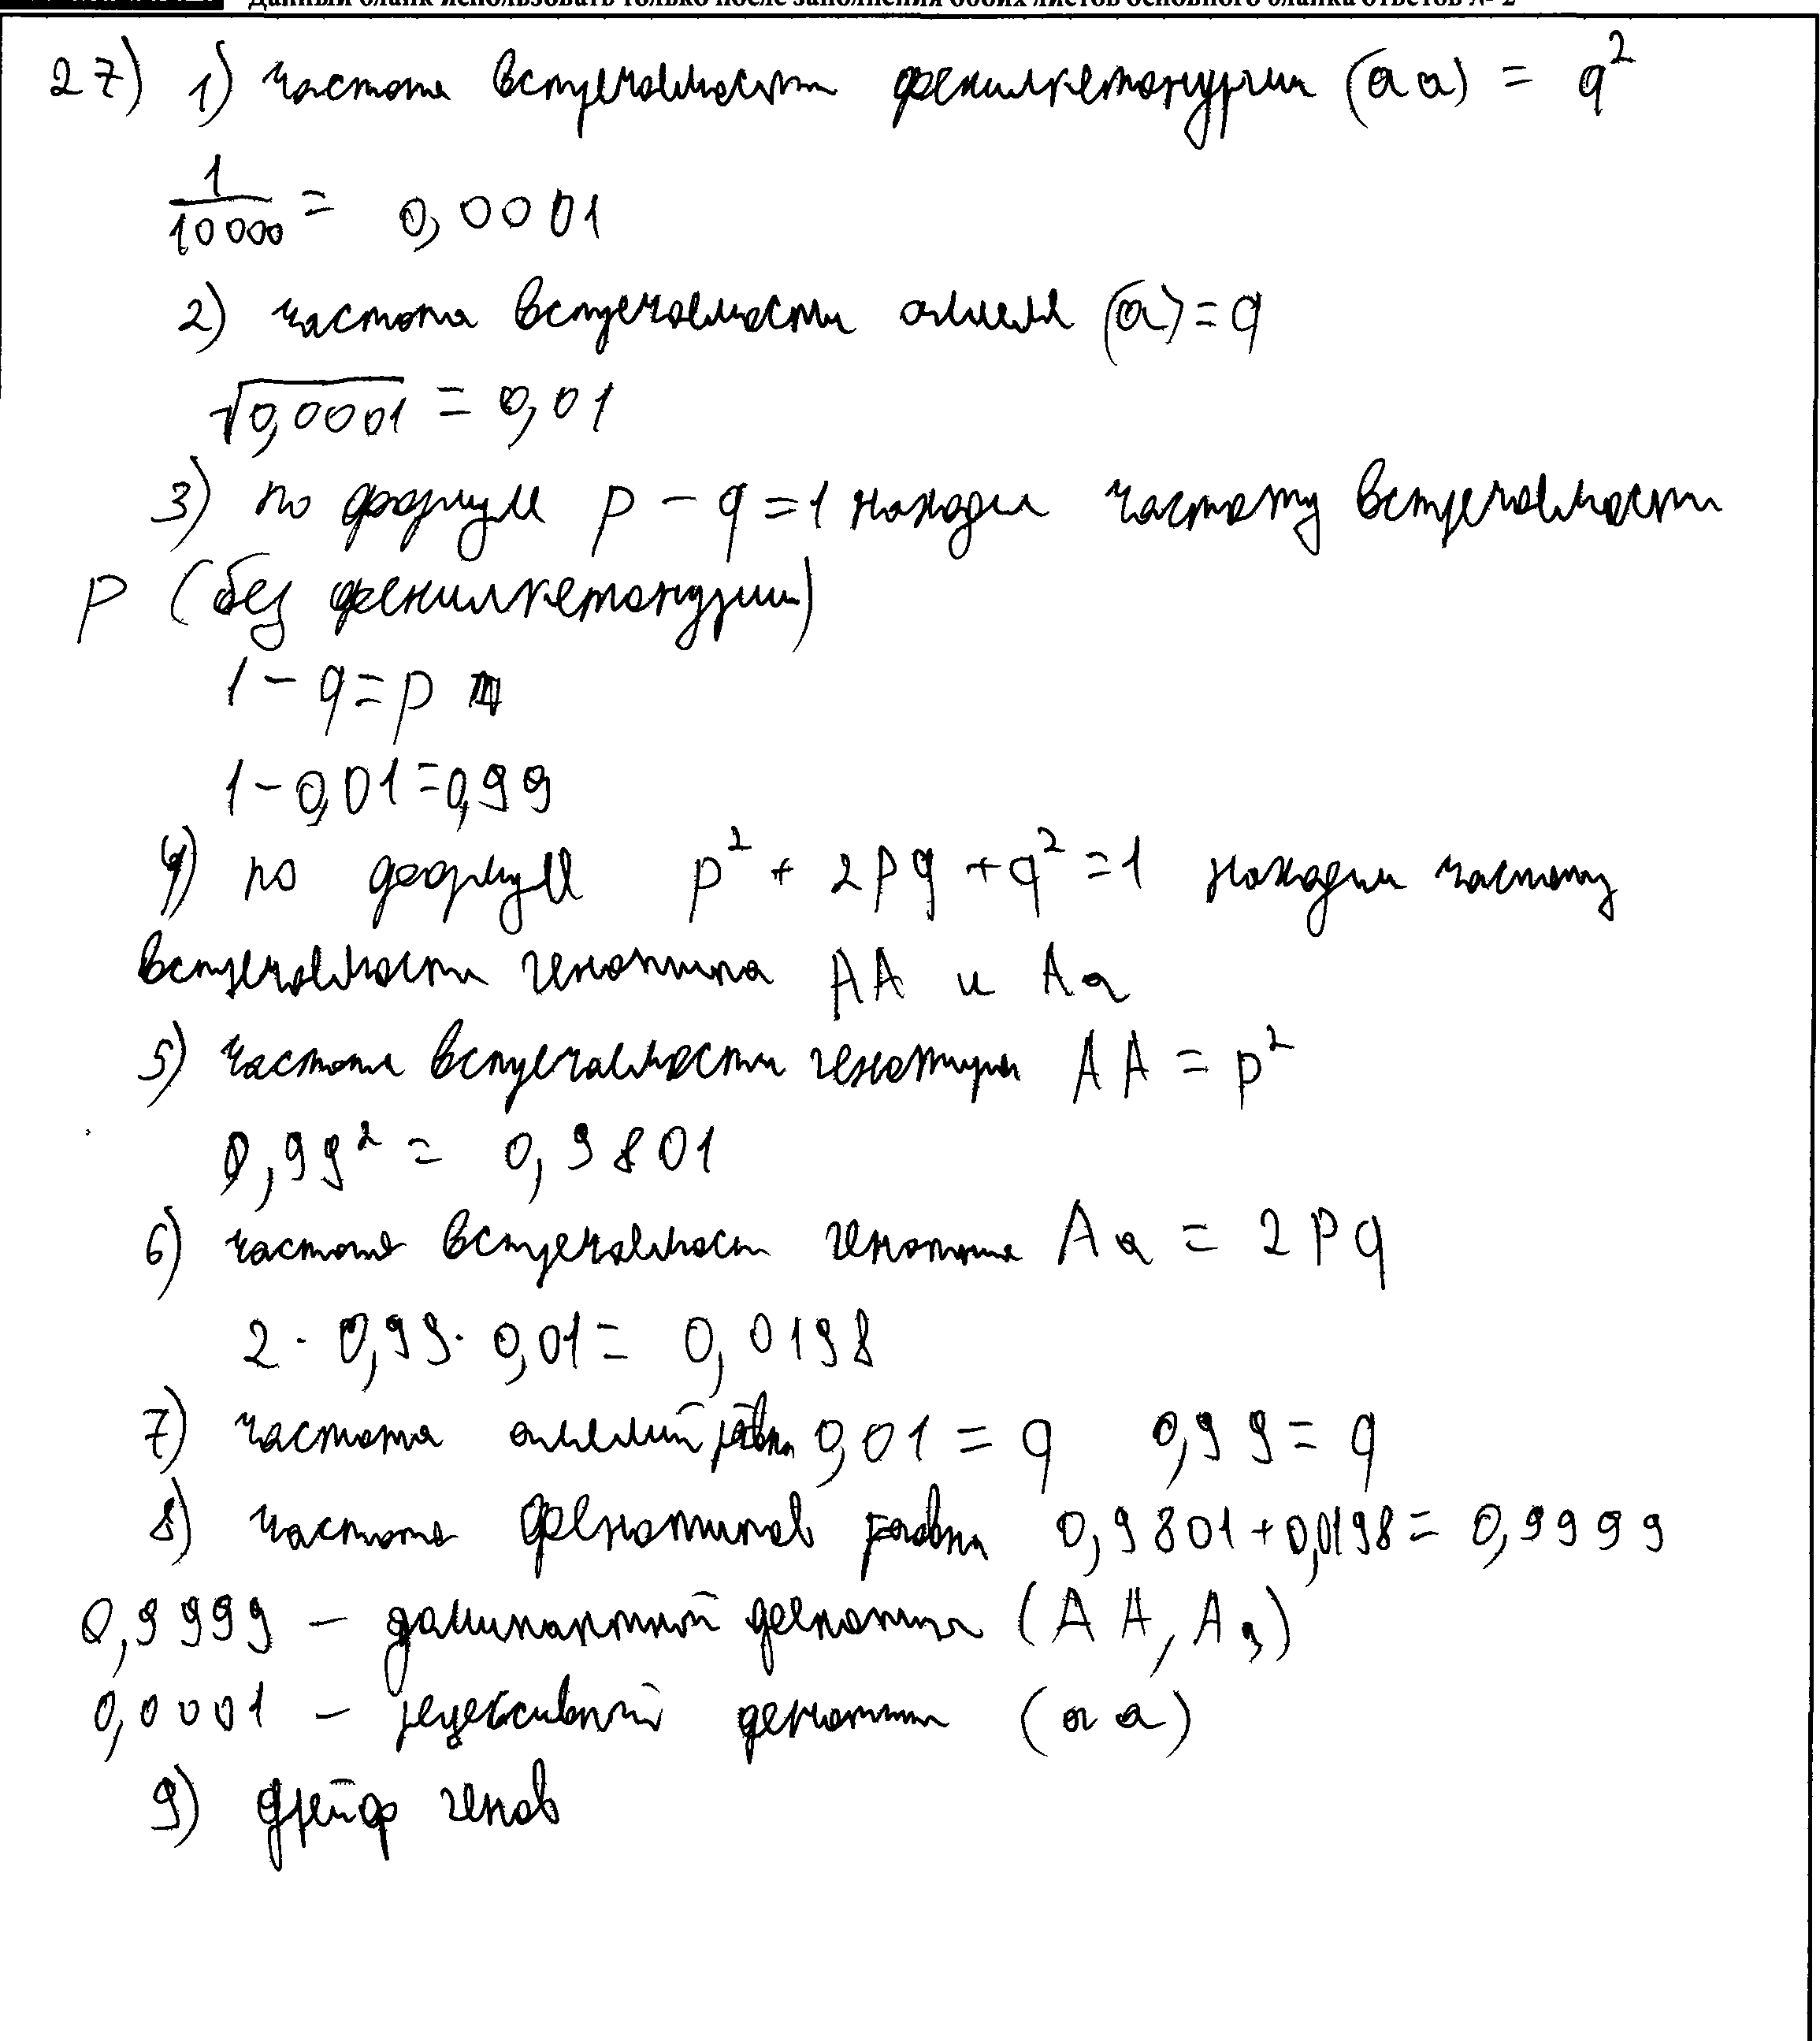 Данный бланк использовать только после заполнения обоих листов основного бланка ответов № 2
27) 1) частота встречаемости фенилкетонурии (аа) = q²
1/10000 = 0,0001
2) частота встречаемости аллеля (а) = q
√0,0001 = 0,01
3) по формуле p - q = 1 находим частоту встречаемости
p (без фенилкетонурии)
1 - q = p
1 - 0,01 = 0,99
4) по формуле p² + 2pq + q² = 1 находим частоту
встречаемости генотипа АА и Аа
5) частота встречаемости генотипа АА = p²
0,99² = 0,9801
6) частота встречаемост генотипа Аа = 2pq
2 · 0,99 · 0,01 = 0,0198
7) частота аллелий равна 0,01 = q 0,99 = q
8) частота фенотипов равна 0,9801 + 0,0198 = 0,9999
0,9999 - доминантный фенотип (АА, Аа)
0,0001 - рецессивный фенотип (аа)
9) дрейф генов